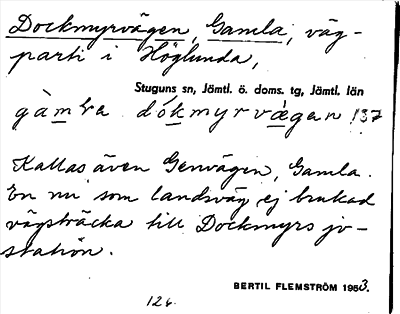 Dockmyrvägen, Gamla, väg-
parti i Höglunda,
Stuguns sn, Jämtl. ö. doms. tg, Jämtl. län
gàmḷa dókmyrvägan 137
Kallas även Genvägen, Gamla.
En nu som landsväg ej brukad
vägsträcka till Dockmyrs jv-
station.
BERTIL FLEMSTRÖM 1953.
126.